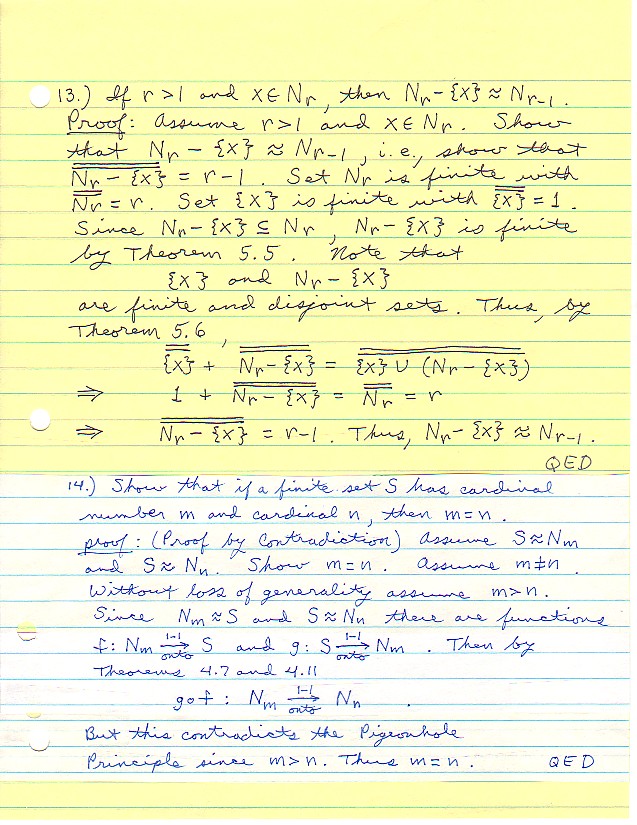 13.) If r > 1 and x ∈ Nr, then Nr - {x} ≈ Nr-1.
Proof: Assume r > 1 and x ∈ Nr. Show
that Nr - {x} ≈ Nr-1, i.e., show that
N̿r̿ ̿-̿ ̿{̿x̿}̿ = r - 1. Set Nr is finite with
N̿r̿ = r. Set {x} is finite with {̿x̿}̿ = 1.
Since Nr - {x} ⊆ Nr, Nr - {x} is finite
by Theorem 5.5. Note that
{x} and Nr - {x}
are finite and disjoint sets. Thus, by
Theorem 5.6,
{̿x̿}̿ + N̿r̿ ̿-̿ ̿{̿x̿}̿ = {̿x̿}̿ ̿∪̿ ̿(̿N̿r̿ ̿-̿ ̿{̿x̿}̿)̿
⇒ 1 + N̿r̿ ̿-̿ ̿{̿x̿}̿ = N̿r̿ = r
⇒ N̿r̿ ̿-̿ ̿{̿x̿}̿ = r - 1. Thus, Nr - {x} ≈ Nr-1.
QED
14.) Show that if a finite set S has cardinal
number m and cardinal n, then m = n.
proof: (Proof by Contradiction) Assume S ≈ Nm
and S ≈ Nn. Show m = n. Assume m ≠ n.
Without loss of generality assume m > n.
Since Nm ≈ S and S ≈ Nn there are functions
f: Nm 1-1→onto S and g: S 1-1→onto Nm. Then by
Theorems 4.7 and 4.11
g∘f : Nm 1-1→onto Nn.
But this contradicts the Pigeonhole
Principle since m > n. Thus m = n. QED